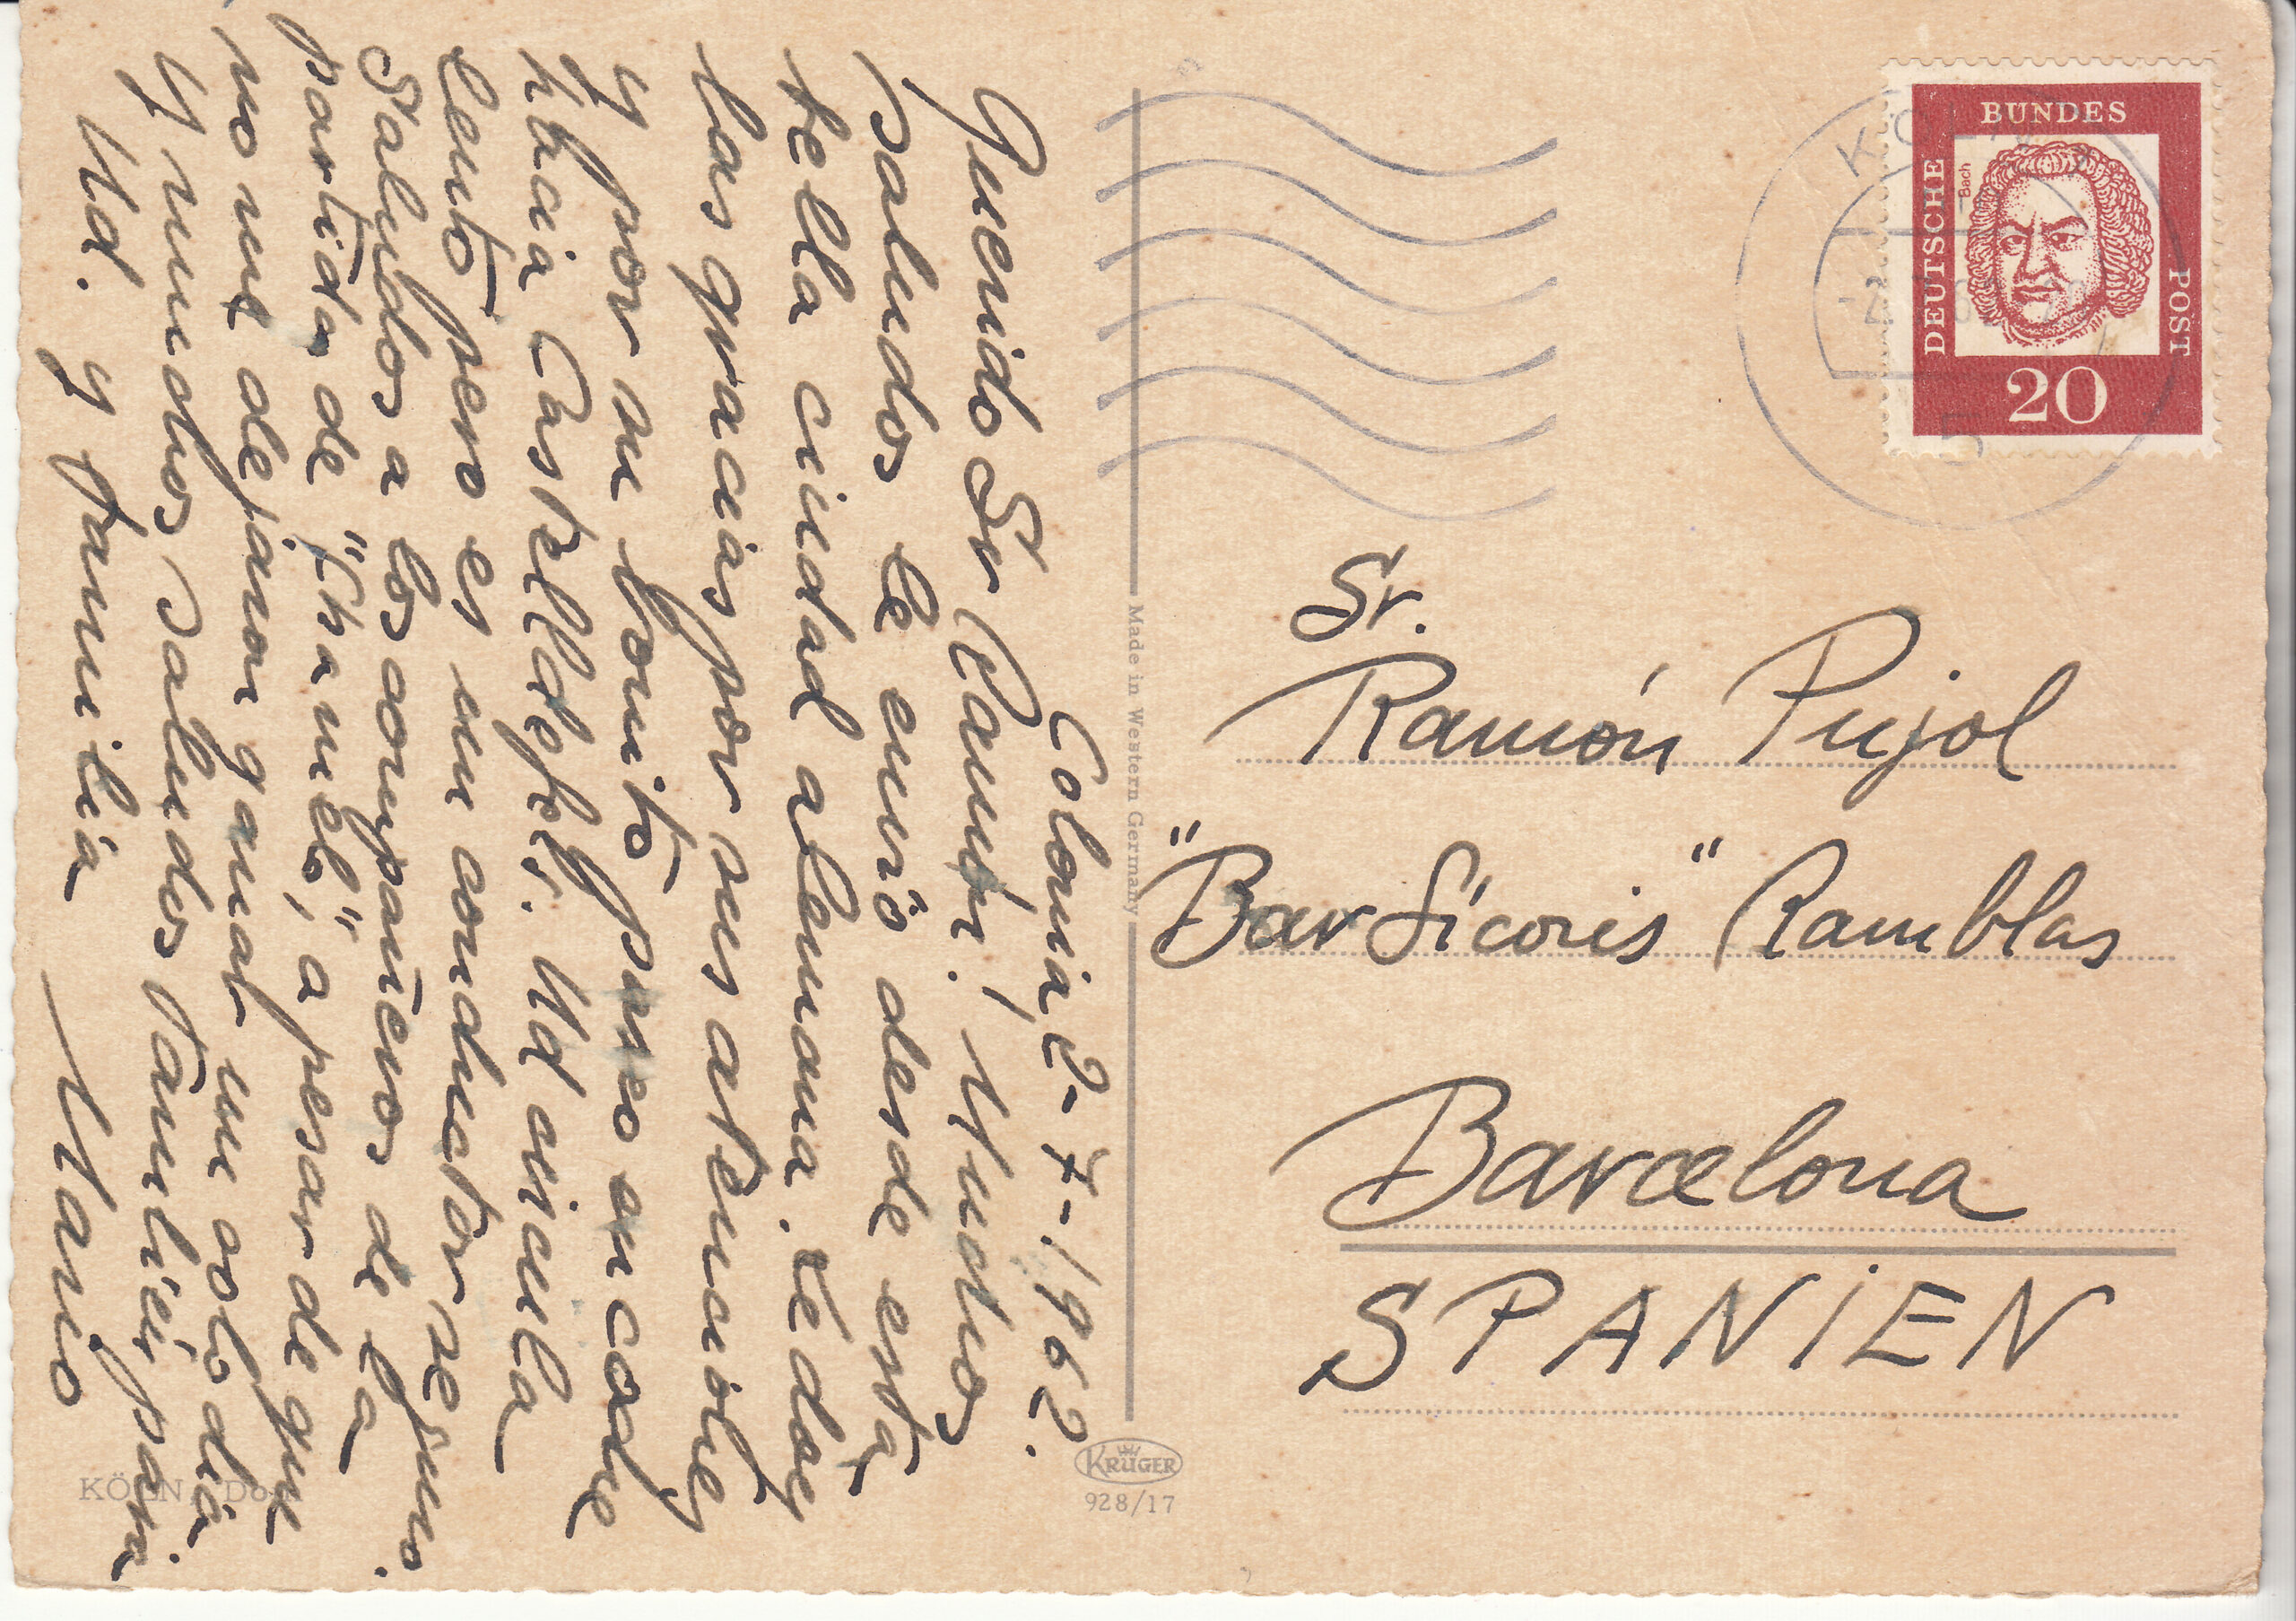 Colonia 2-7-1962.
Querido Sr Ramón! Muchos
saludos le envió desde esta
bella ciudad alemana. Le doy
las gracias por sus atenciones
y por su bonito paseo en coche
hacia Castelldefels. Ud circula
lento pero es un conductor seguro.
Saludos a los compañeros de la
partida de "Chamelo", a pesar de que
no me dejaron ganar un solo día
y muchos saludos también para
Ud. y familia
Mario
KÖLN, Dom
Made in Western Germany
KRÜGER
928/17
DEUTSCHE BUNDES POST
Bach
20
KÖLN
5
Sr.
Ramón Pujol
"Bar Sicoris" Ramblas
Barcelona
SPANIEN